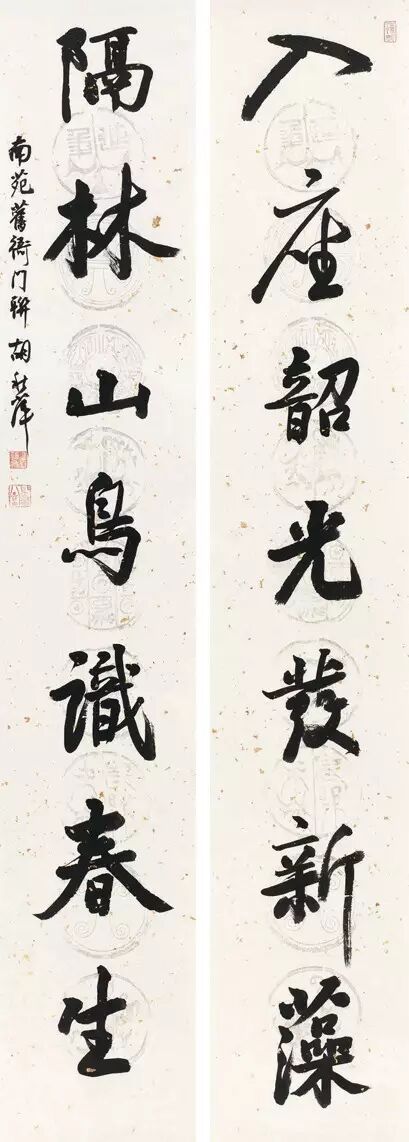 入座韶光發新藻
隔林山鳥識春生
南苑舊衙門聯 胡秋萍